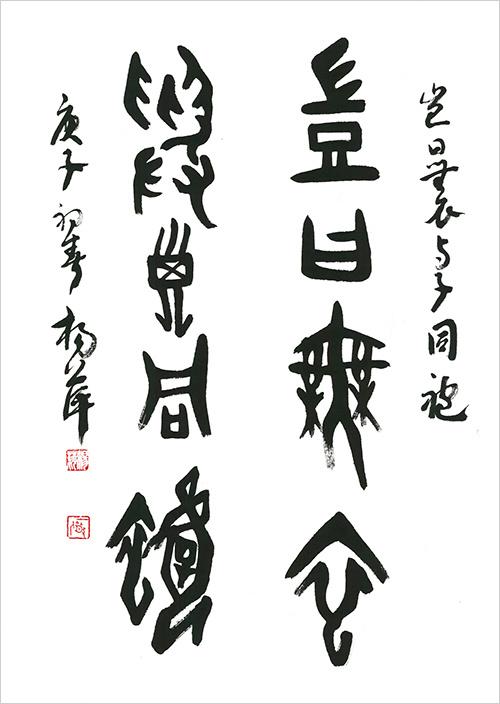 岂曰無衣与子同袍
豈曰無衣
與子同袍
庚子初春 杨